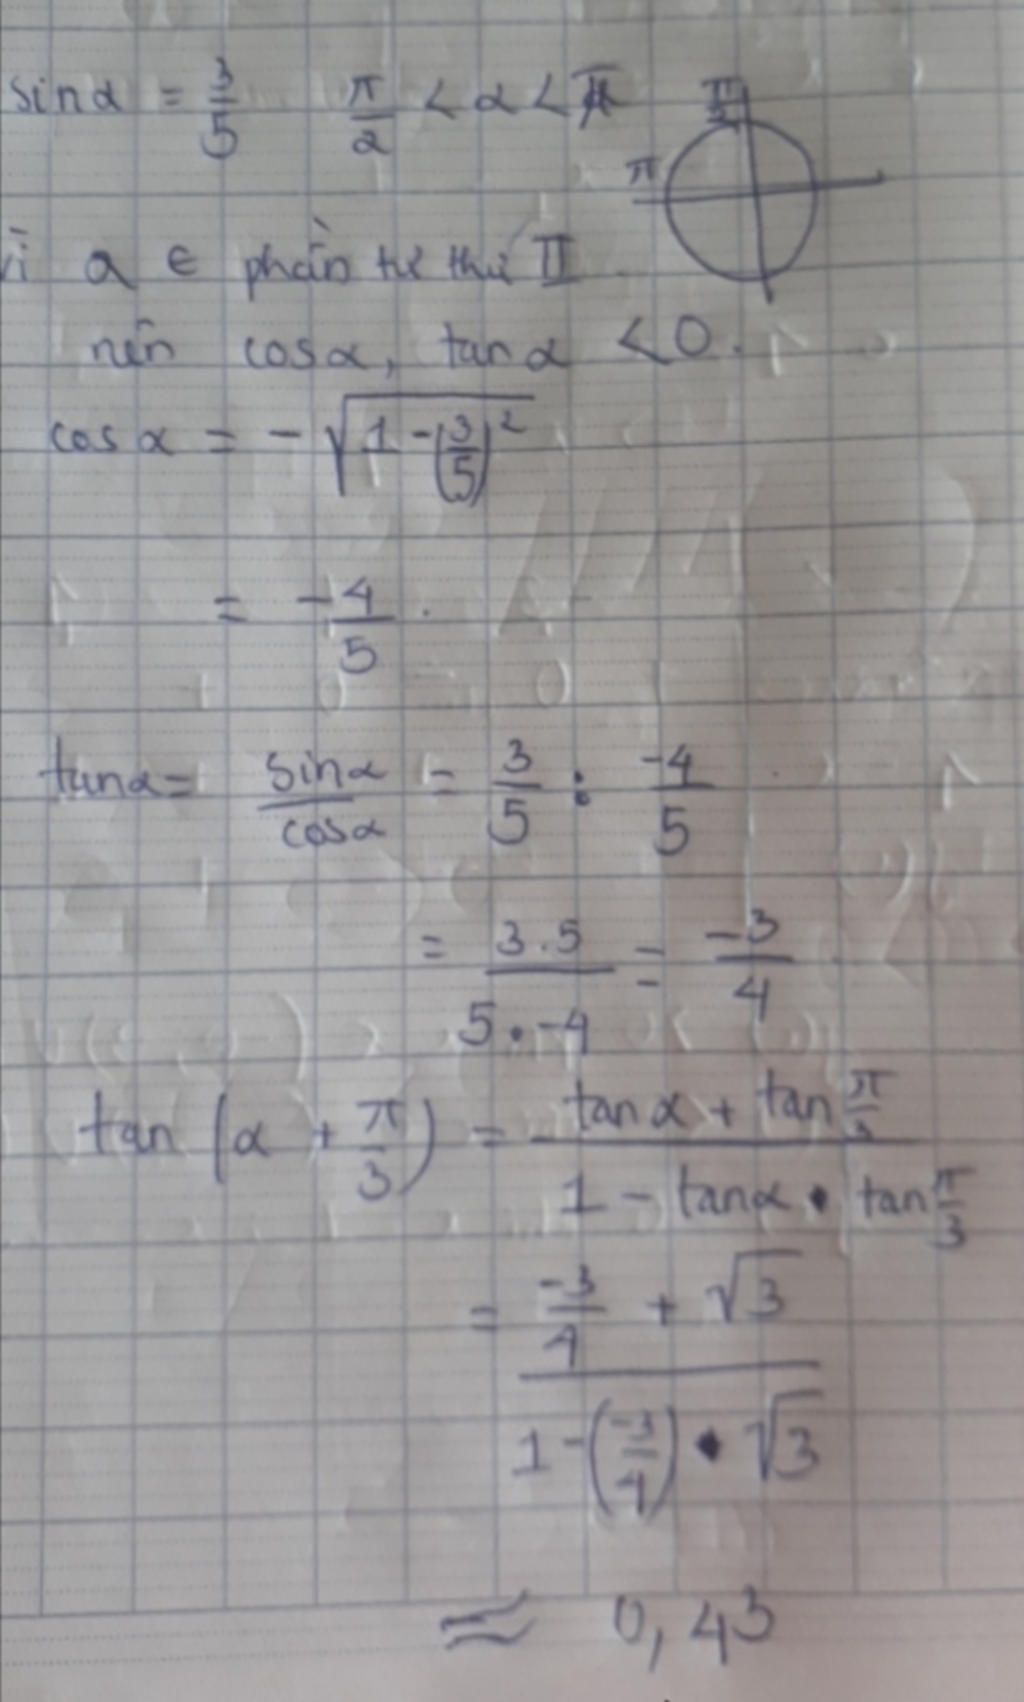 sinα = 3/5   π/2 < α < π
π/2
π
vì α ∈ phần tư thứ II
nên cosα, tanα < 0.
cosα = -√(1-(3/5)²)
= -4/5.
tanα = sinα/cosα = 3/5 : -4/5
= 3.5/5.-4 = -3/4
tan(α + π/3) = (tanα + tan π/3)/(1 - tanα . tan π/3)
= (-3/4 + √3)/(1-(-3/4) . √3)
≈ 0,43